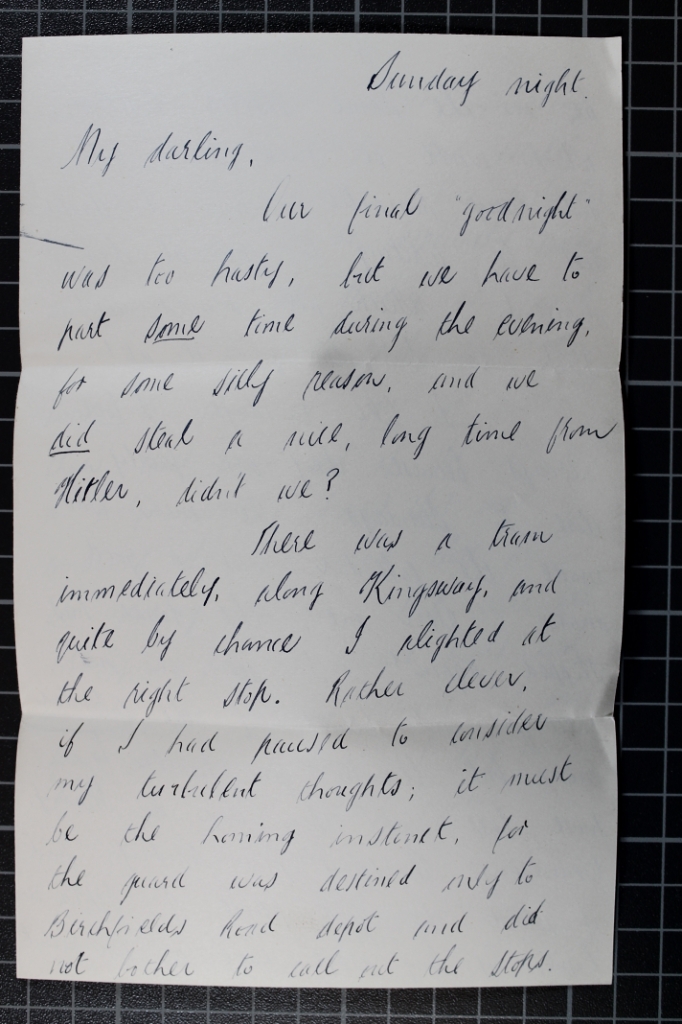 Sunday night.
My darling,
Our final "goodnight"
was too hasty, but we have to
part some time during the evening,
for some silly reason, and we
did steal a nice, long time from
Hitler, didn't we?
There was a tram
immediately, along Kingsway, and
quite by chance I alighted at
the right stop. Rather clever,
if I had paused to consider
my turbulent thoughts; it must
be the homing instinct, for
the guard was destined only to
Birchfields Road depot and did
not bother to call out the stops.